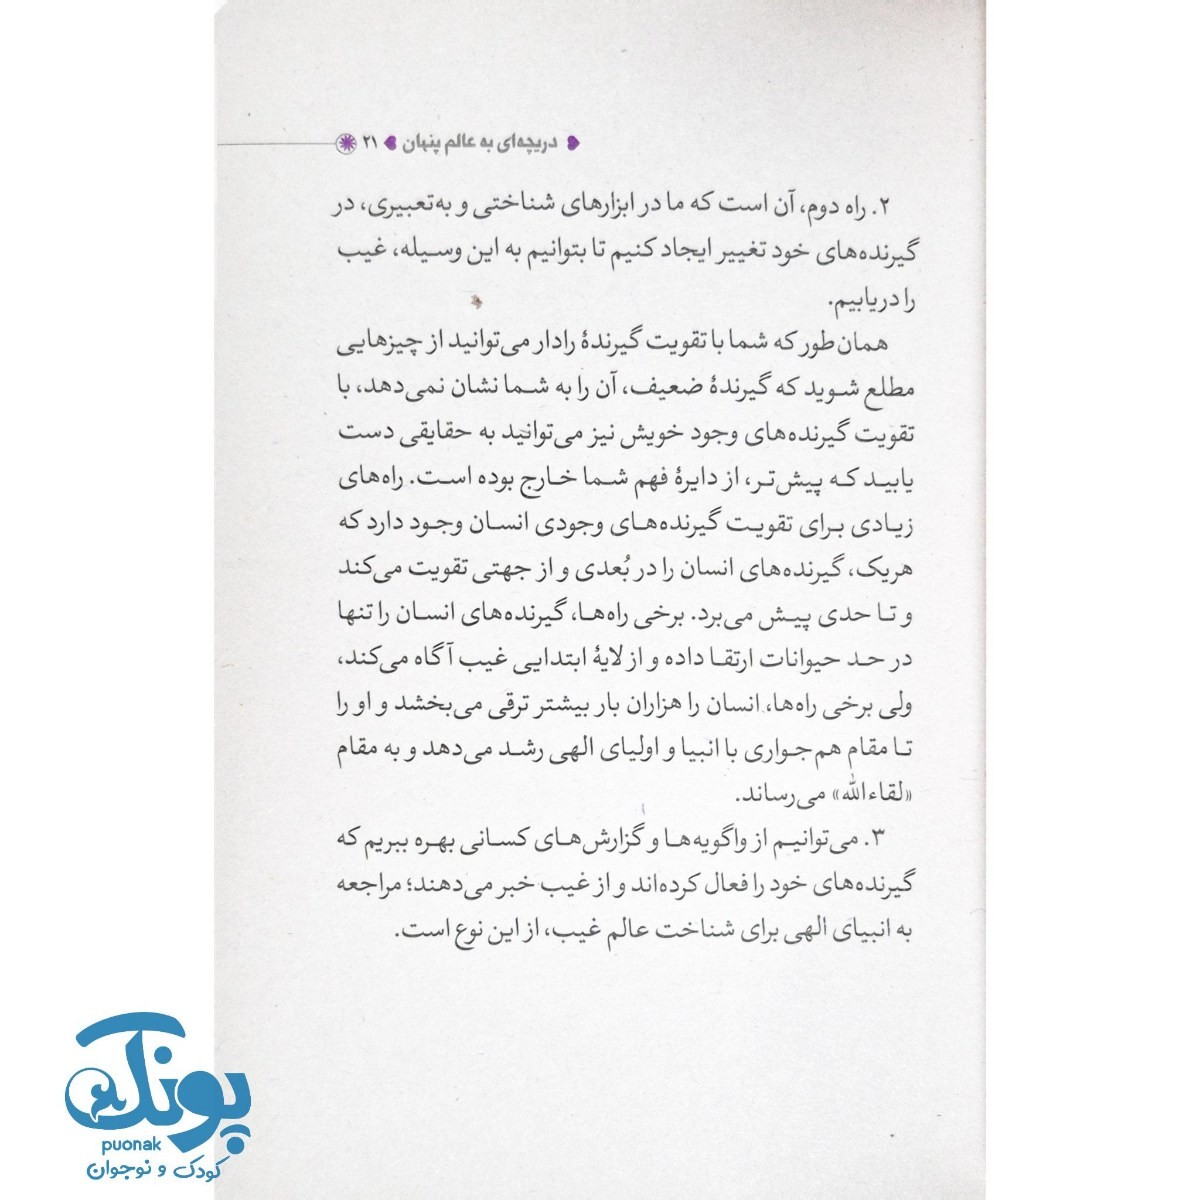 دریچه‌ای به عالم پنهان ۲۱
۲. راه دوم، آن است که ما در ابزارهای شناختی و به‌تعبیری، در
گیرنده‌های خود تغییر ایجاد کنیم تا بتوانیم به این وسیله، غیب
را دریابیم.
همان‌طور که شما با تقویت گیرندهٔ رادار می‌توانید از چیزهایی
مطلع شوید که گیرندهٔ ضعیف، آن را به شما نشان نمی‌دهد، با
تقویت گیرنده‌های وجود خویش نیز می‌توانید به حقایقی دست
یابید که پیش‌تر، از دایرهٔ فهم شما خارج بوده است. راه‌های
زیادی برای تقویت گیرنده‌های وجودی انسان وجود دارد که
هریک، گیرنده‌های انسان را در بُعدی و از جهتی تقویت می‌کند
و تا حدی پیش می‌برد. برخی راه‌ها، گیرنده‌های انسان را تنها
در حد حیوانات ارتقا داده و از لایهٔ ابتدایی غیب آگاه می‌کند،
ولی برخی راه‌ها، انسان را هزاران بار بیشتر ترقی می‌بخشد و او را
تا مقام هم‌جواری با انبیا و اولیای الهی رشد می‌دهد و به مقام
«لقاءالله» می‌رساند.
۳. می‌توانیم از واگویه‌ها و گزارش‌های کسانی بهره ببریم که
گیرنده‌های خود را فعال کرده‌اند و از غیب خبر می‌دهند؛ مراجعه
به انبیای الهی برای شناخت عالم غیب، از این نوع است.
پونک
puonak
کودک و نوجوان